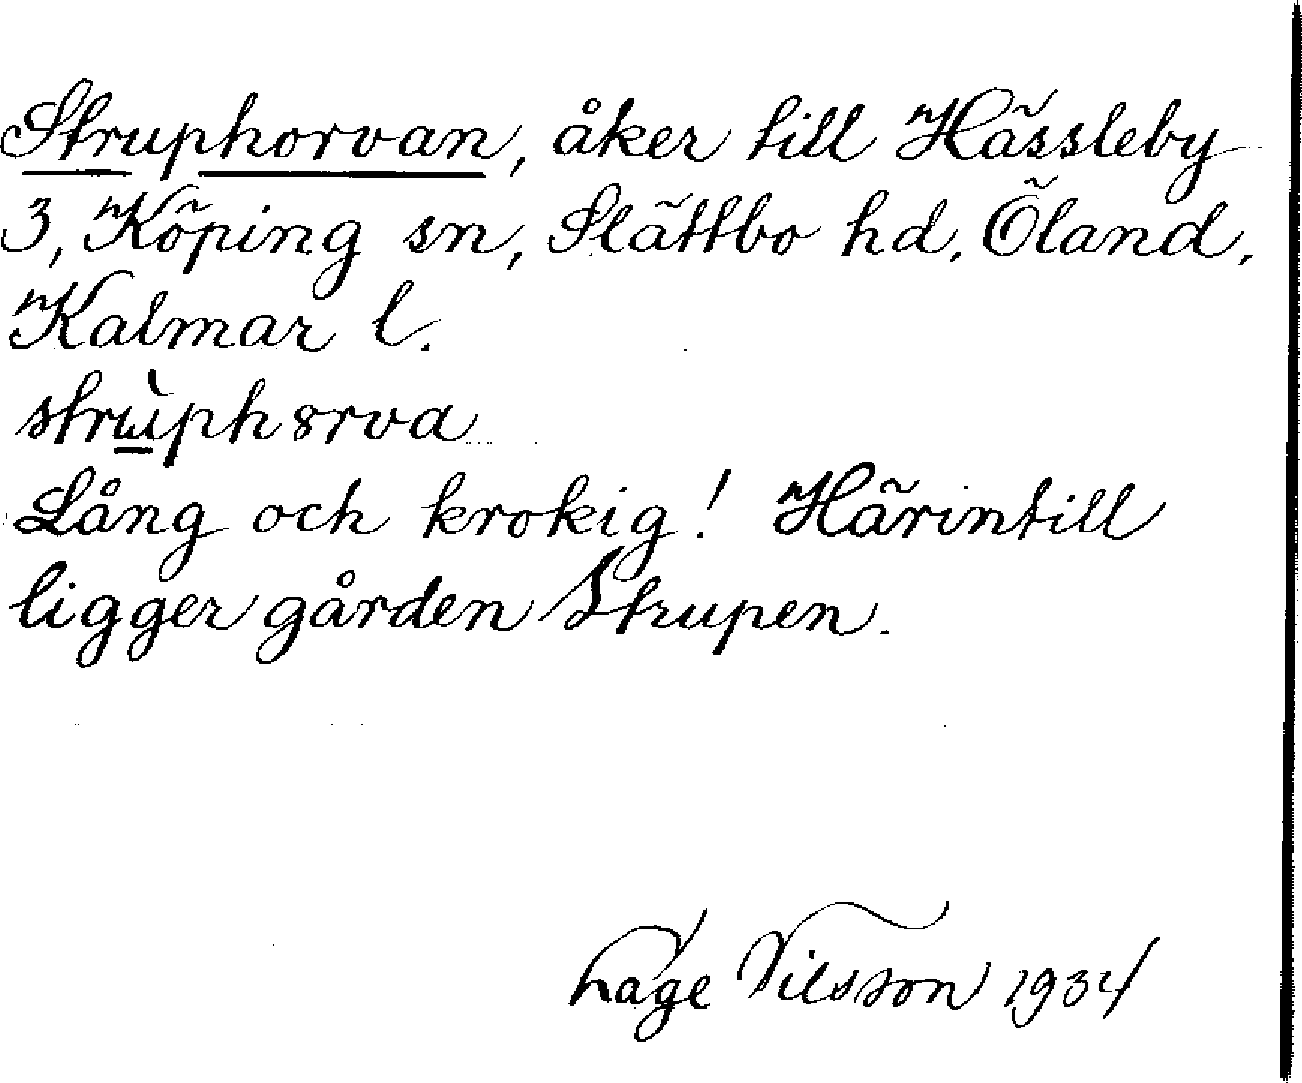 Struphorvan, åker till Hässleby
3, Köping sn, Slättbo hd, Öland,
Kalmar l.
strùphorva
Lång och krokig! Härintill
ligger gården Strupen.
Nilsson 1934